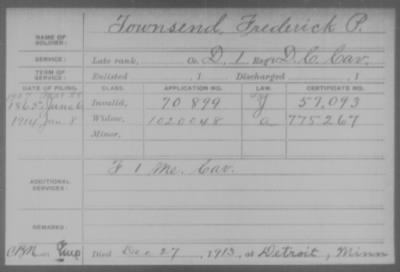 NAME OF SOLDIER: Townsend, Frederick P.
SERVICE: Late rank, Co. D, 1 Reg't D.C. Cav.
TERM OF SERVICE: Enlisted , 1 Discharged , 1
DATE OF FILING. CLASS. APPLICATION NO. LAW. CERTIFICATE NO.
1865 June 6 Invalid, 70 899 57,093
1914 Jan. 8 Widow, 1020048 a 775267
Minor,
ADDITIONAL SERVICES: F 1 Me. Cav.
REMARKS:
Died Dec 27, 1913, at Detroit, Minn